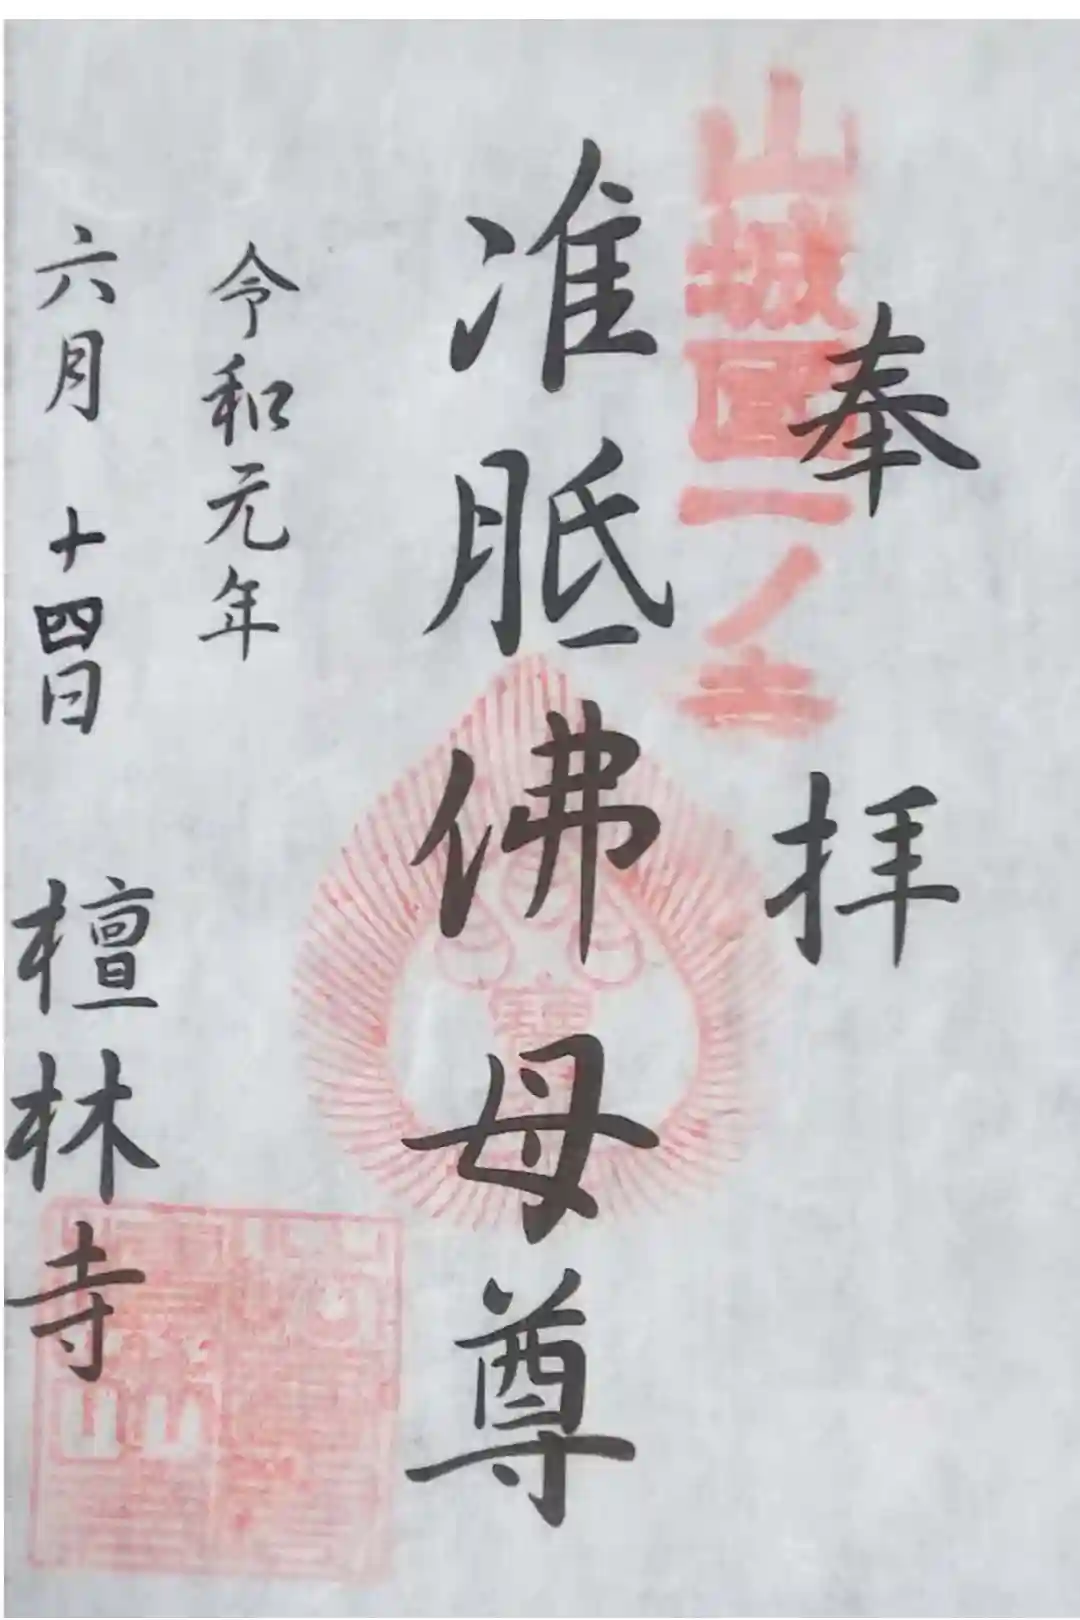 奉拝
山城國一ノ寺
准胝佛母尊
令和元年
六月十四日 檀林寺